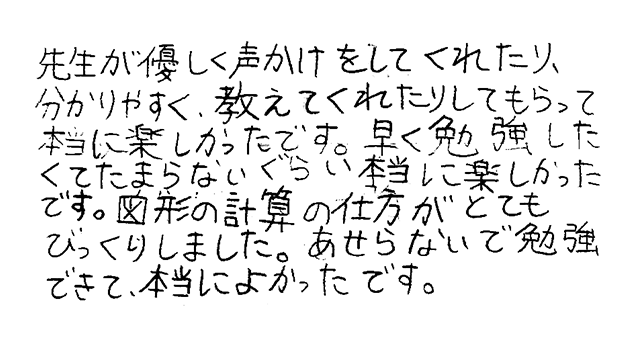 先生が優しく声かけをしてくれたり、
分かりやすく、教えてくれたりしてもらって
本当に楽しかったです。早く勉強した
くてたまらないぐらい本当に楽しかった
です。図形の計算の仕方がとても
びっくりしました。あせらないで勉強
できて、本当によかったです。